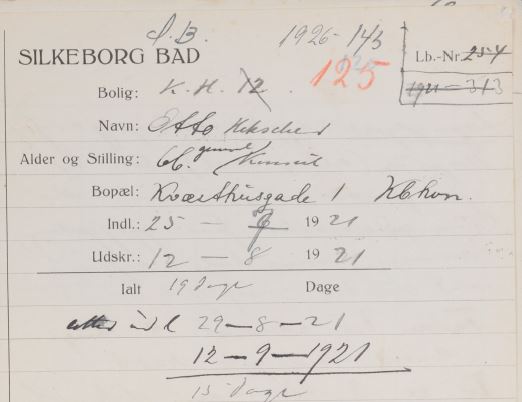 S.B. 1926-143
SILKEBORG BAD
Lb.-Nr. 254
125
1921-313
Bolig: K. H. 12.
Navn: Otto
Alder og Stilling: 66. general Konsul
Bopæl: Kvæsthusgade 1 Kbhvn.
Indl.: 25 - 7 1921
Udskr.: 12 - 8 1921
Ialt 19 dage Dage
29-8-21
12-9-1921
15 dage